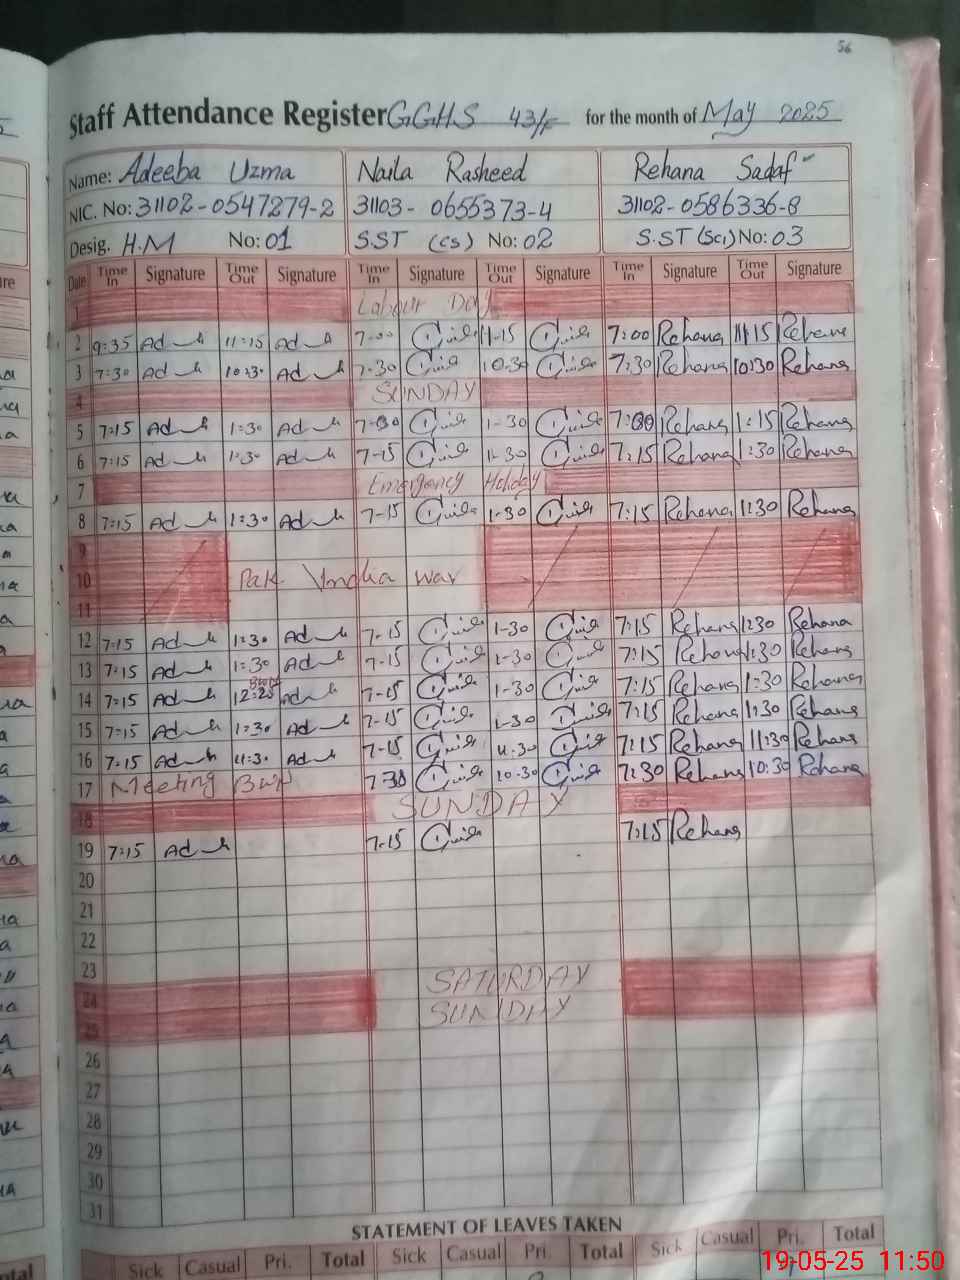 56
Staff Attendance Register GGHS 43/F for the month of May 2025
Name: Adeeba Uzma Naila Rasheed Rehana Sadaf
NIC. No: 31102-0547279-2 31103-0655373-4 31102-0586336-8
Desig. H.M No: 01 S.ST (cs) No: 02 S.ST (Sci) No: 03
Date Time In Signature Time Out Signature Time In Signature Time Out Signature Time In Signature Time Out Signature
1 Labour Day
2 9:35 11:15 7-00 11-15 7:00 Rehana 11:15 Rehana
3 7:30 10:30 7-30 10-30 7:30 Rehana 10:30 Rehana
4 SUNDAY
5 7:15 1:30 7-00 1-30 7:00 Rehana 1:15 Rehana
6 7:15 1:30 7-15 1-30 7:15 Rehana 1:30 Rehana
7 Emergency Holiday
8 7:15 1:30 7-15 1-30 7:15 Rehana 1:30 Rehana
9
10 Pak India war
11
12 7:15 1:30 7-15 1-30 7:15 Rehana 1:30 Rehana
13 7:15 1:30 7-15 1-30 7:15 Rehana 1:30 Rehana
14 7:15 12:25 7-15 1-30 7:15 Rehana 1:30 Rehana
15 7:15 1:30 7-15 1-30 7:15 Rehana 1:30 Rehana
16 7:15 11:30 7-15 11-30 7:15 Rehana 11:30 Rehana
17 Meeting 7-30 10-30 7:30 Rehana 10:30 Rehana
18 SUNDAY
19 7:15 7-15 7:15 Rehana
20
21
22
23
24 SATURDAY
25 SUNDAY
26
27
28
29
30
31
STATEMENT OF LEAVES TAKEN
Sick Casual Pri. Total Sick Casual Pri. Total Sick Casual Pri. Total
19-05-25 11:50